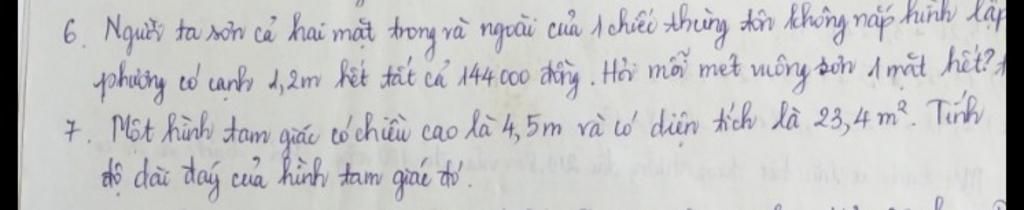 6. Người ta sơn cả hai mặt trong và ngoài của 1 chiếc thùng tôn không nắp hình lập
phương có cạnh 1,2m hết tất cả 144 000 đồng. Hỏi mỗi mét vuông sơn 1 mặt hết?
7. Một hình tam giác có chiều cao là 4,5m và có diện tích là 23,4 m². Tính
độ dài đáy của hình tam giác đó.